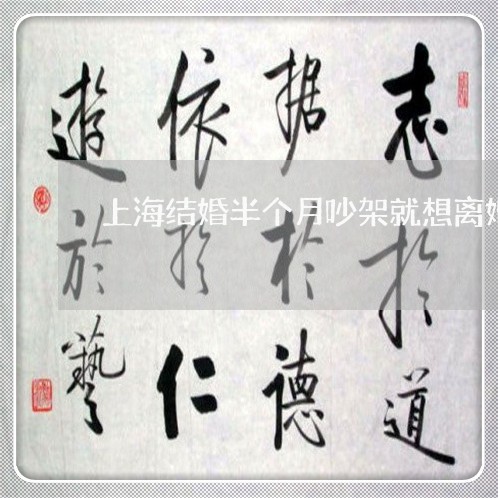 志於道
据於德
依於仁
遊於藝
上海结婚半个月吵架就想离